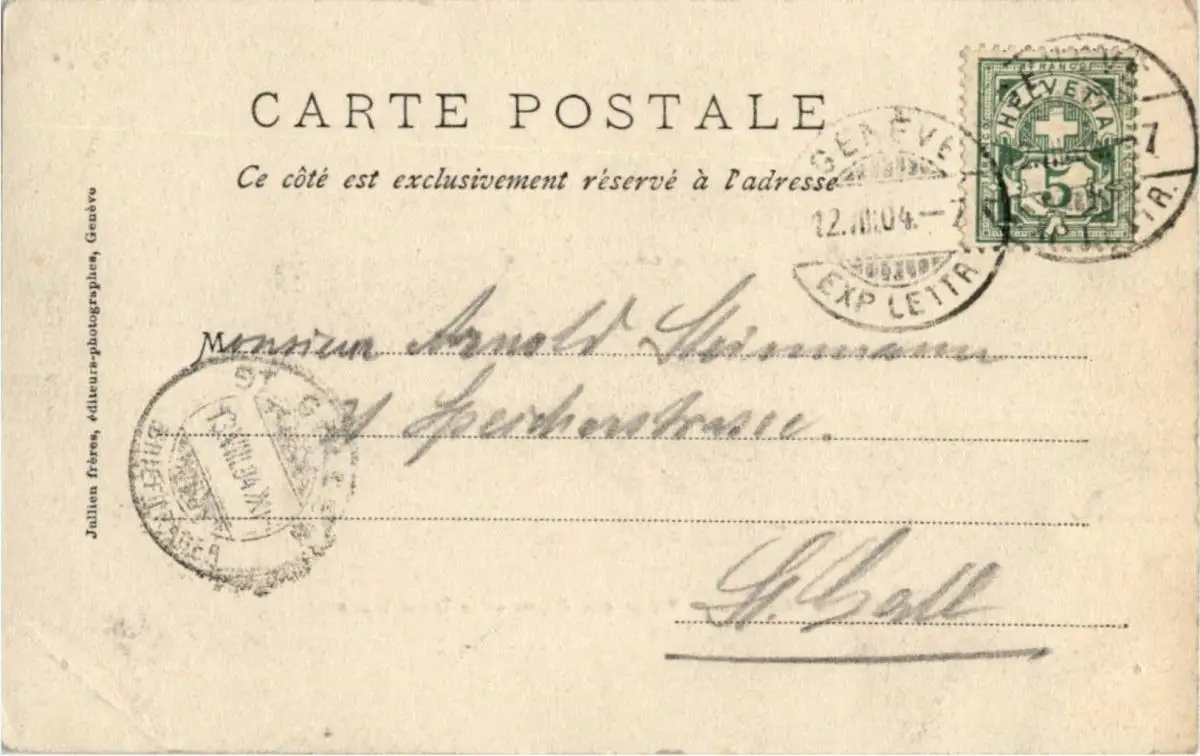 CARTE POSTALE
Ce côté est exclusivement réservé à l'adresse
FRANCO
HELVETIA
5
GENÈVE
12.VIII.04.–7
EXP. LETTR.
LETTR.
Monsieur Arnold Steinmann
21 Speicherstrasse.
St. Gall
ST. GALLEN
13.VIII.04.XI
BRIEFTRÄGER
Jullien frères, éditeurs-photographes, Genève